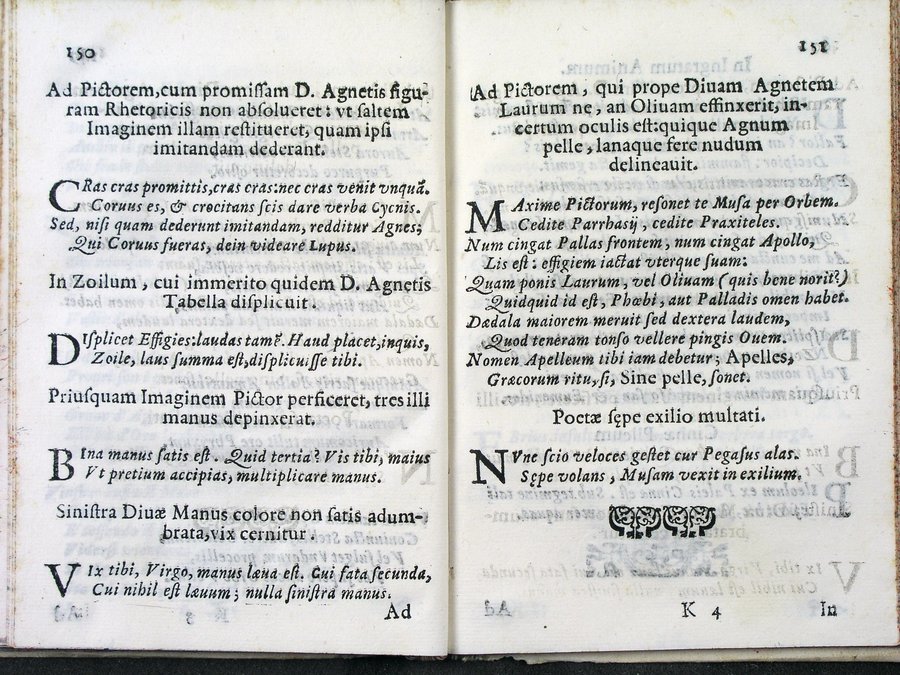 150
Ad Pictorem, cum promiſſam D. Agnetis figu-
ram Rhetoricis non abſolueret: vt ſaltem
Imaginem illam reſtitueret, quam ipſi
imitandam dederant.
CRas cras promittis, cras cras: nec cras venit vnquã.
Coruus es, & crocitans ſcis dare verba Cycnis.
Sed, niſi quam dederunt imitandam, redditur Agnes;
Qui Coruus fuerat, dein videare Lupus.
In Zoilum, cui immerito quidem D. Agnetis
Tabella diſplicuit.
DIſplicet Effigies: laudas tamẽ. Haud placet, inquis,
Zoile, laus ſumma eſt, diſplicuiſſe tibi.
Priuſquam Imaginem Pictor perficeret, tres illi
manus depinxerat.
BIna manus ſatis eſt. Quid tertia? Vis tibi, maius
Vt pretium accipias, multiplicare manus.
Siniſtra Diuæ Manus colore non ſatis adum-
brata, vix cernitur.
VIx tibi, Virgo, manus læua eſt. Cui fata ſecunda,
Cui nihil eſt læuum; nulla ſiniſtra manus.
Ad
151
Ad Pictorem, qui prope Diuam Agnetem
Laurum ne, an Oliuam effinxerit, in-
certum oculis eſt: quique Agnum
pelle, lanaque fere nudum
delineauit.
MAxime Pictorum, reſonet te Muſa per Orbem.
Cedite Parrhasij, cedite Praxiteles.
Num cingat Pallas frontem, num cingat Apollo,
Lis eſt: effigiem iactat vterque ſuam.
Quam ponis Laurum, vel Oliuam (quis bene norit?)
Quidquid id eſt, Phœbi, aut Palladis omen habet.
Dædala maiorem meruit ſed dextera laudem,
Quod teneram tonſo vellere pingis Ouem.
Nomen Apelleum tibi iam debetur; Apelles,
Græcorum ritu, ſi, Sine pelle, ſonet.
Poetæ ſępe exilio multati.
NVnc ſcio veloces geſtet cur Pegaſus alas.
Sępe volans, Muſam vexit in exilium.
K 4
In